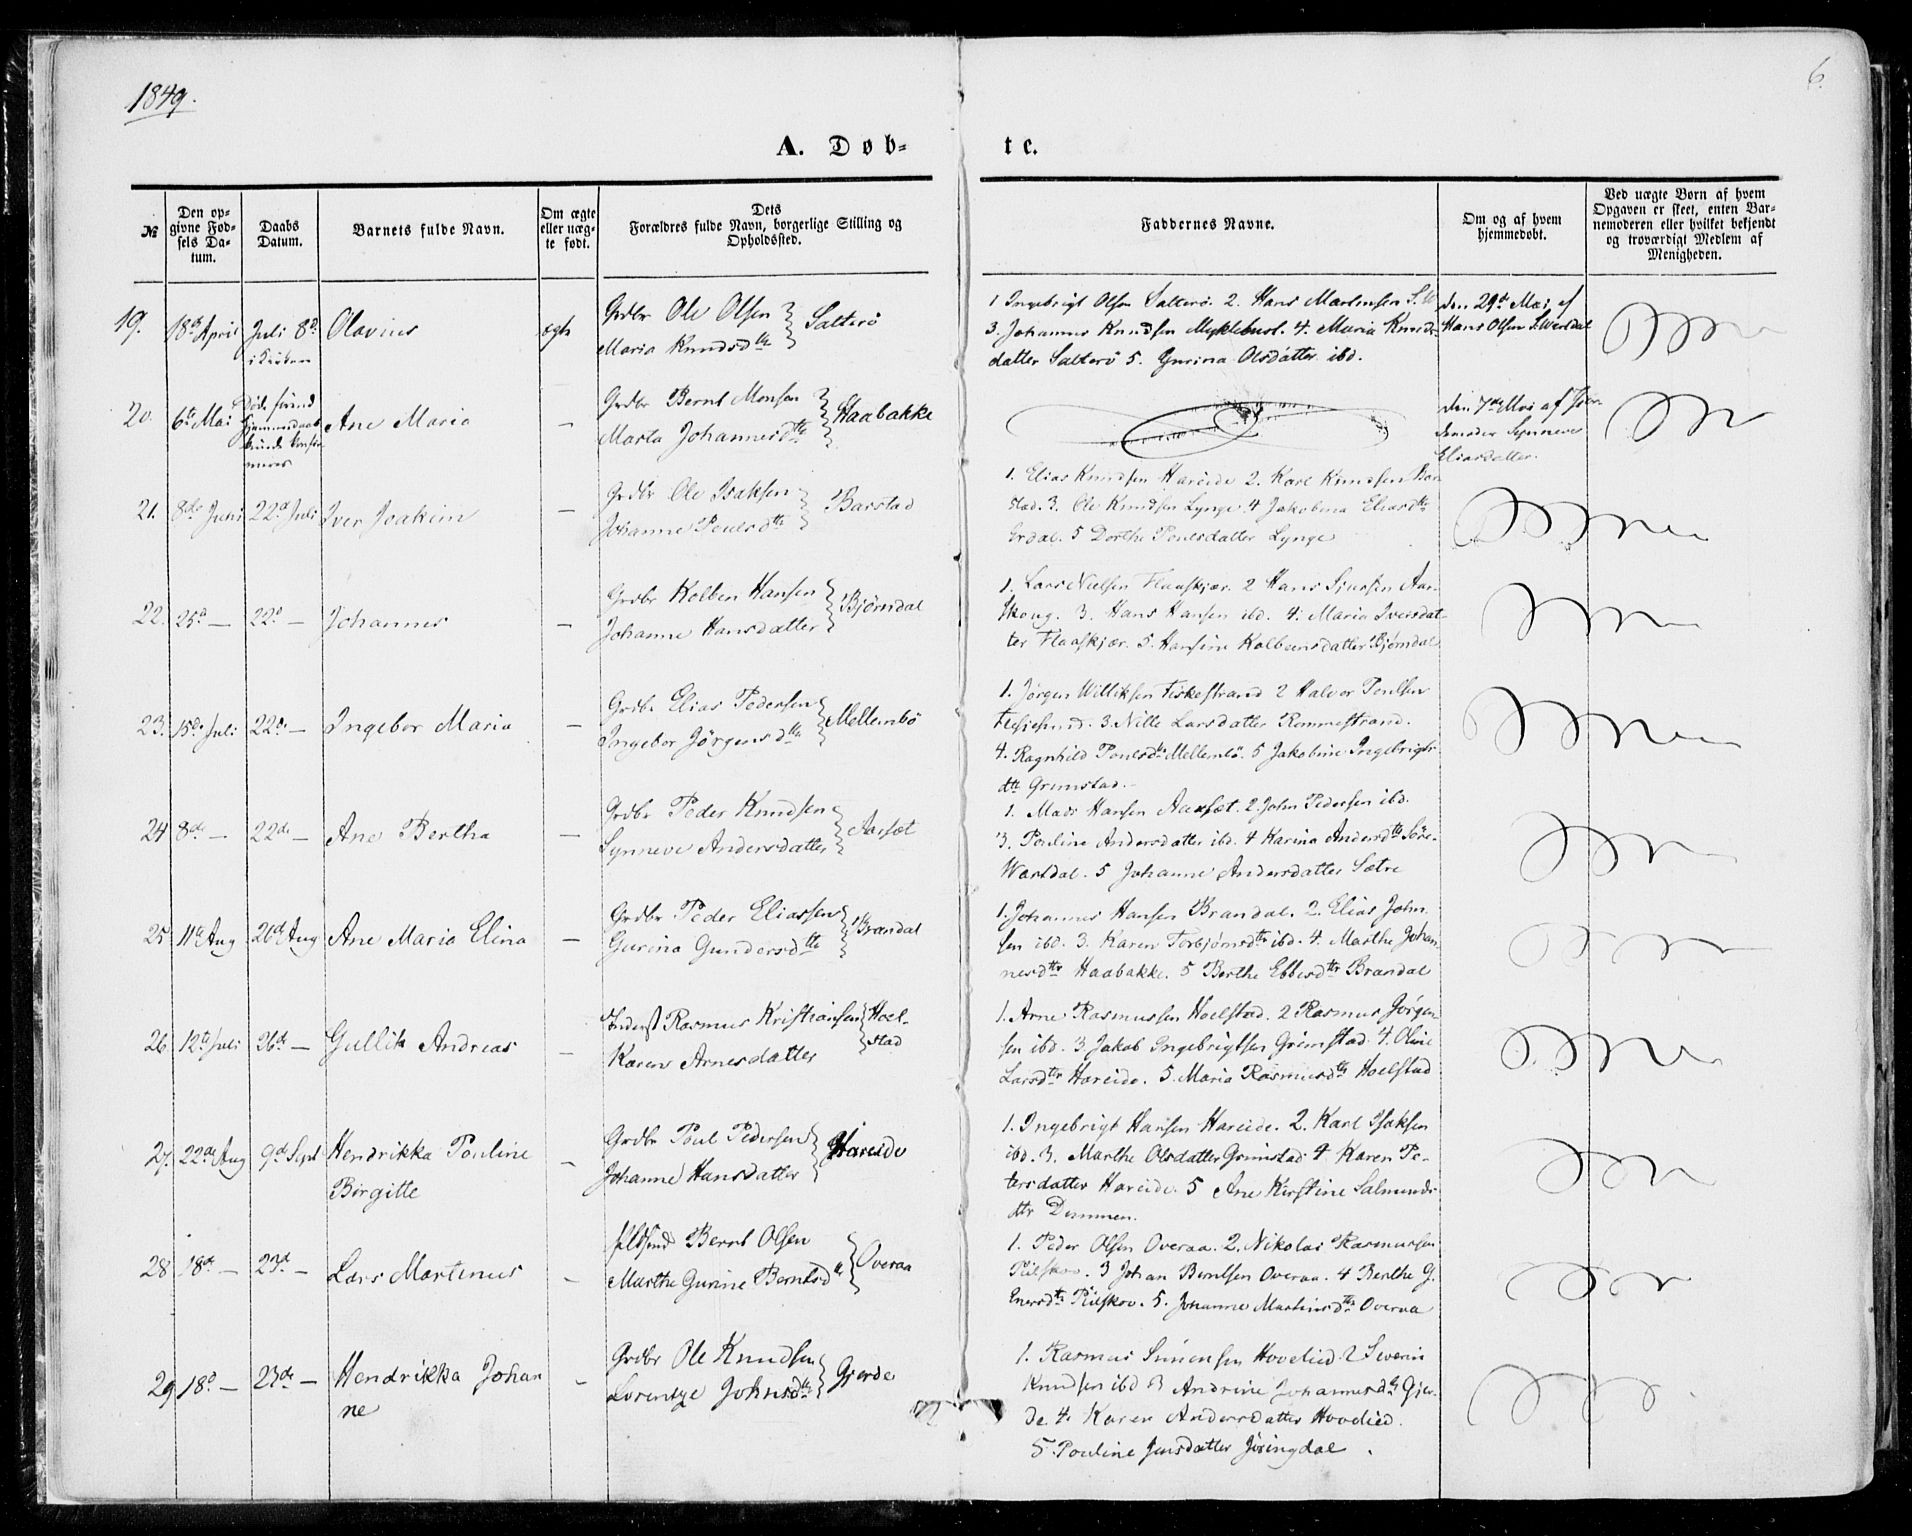 1849.
6.
A. Døb-
te.
№
Den op-
givne Fød-
sels Da-
tum.
Daabs
Datum.
Barnets fulde Navn.
Om ægte
eller uæg-
te født.
Dets
Forældres fulde Navn, borgerlige Stilling og
Opholdssted.
Faddernes Navne.
Om og af hvem
hjemmedøbt.
Ved uægte Børn af hvem
Opgaven er skeet, enten Bar-
nemoderen eller hvilket bekjendt
og troværdigt Medlem af
Menigheden.
19. 18de April Juli 8d. Olavius ægte Grdbr Ole Olsen Salterö
i Kirken Maria Knudsdtr
1 Ingebrigt Olsen Salterö. 2. Hans Martinsen
3. Johannes Knudsen Myklebust. 4. Maria Knuds-
datter Salterö 5. Gurina Olsdatter ibd.
den 29de Mai af
Hans Olsen
20. 6te Mai Ane Maria — Grdbr Bernt Monsen Haabakke
Marta Johannesdtr
den 7de Mai af Jor-
demoder Synneve
Eliasdatter.
21. 8de Juni 22d Juli Iver Joakim — Grdbr Ole Isaksen Barstad
Johanne Poulsdtr
1. Elias Knudsen Hareide 2. Karl Knudsen Bar-
stad. 3. Ole Knudsen Lynge 4 Jakobina Eliasdtr
Erdal. 5 Dorthe Poulsdatter Lynge
22. 25d — 22d — Johannes — Grdbr Kolben Hansen Bjørndal
Johanne Hansdatter
1. Lars Nielsen Flaaskjær. 2 Hans Sjursen Aar-
skoug. 3. Hans Hansen ibd. 4. Maria Iversdat-
ter Flaaskjær. 5. Hansine Kolbensdatter Bjørndal
23. 15de Juli 22de — Ingebor Maria — Grdbr Elias Pedersen Mellembö
Ingebor Jörgensdtr
1. Jörgen Williksen Fiskestrand 2 Halvor Poulsen
3. Nille Larsdatter Rommestrand.
4. Ragnhild Poulsdtr Mellembö. 5 Jakobine Ingebrigts-
dtr Grimstad.
24 8de — 22de — Ane Bertha — Grdbr Peder Knudsen Aarsæt
Synneve Andersdatter
1. Mads Hansen Aarsæt. 2. John Pedersen ibd.
3. Pouline Andersdatter ibd. 4 Karina Andersdtr Söre-
Wartdal. 5 Johanne Andersdatter Sætre
25 11te Aug 26d Aug Ane Maria Elina — Grdbr Peder Eliassen Brandal
Gurina Gundersdtr
1. Johannes Hansen Brandal. 2. Elias John-
sen ibd. 3. Karen Torbjørnsdtr ibd. 4. Marthe Johan-
nesdtr Haabakke. 5 Berthe Ebbesdtr Brandal
26 12te Juli 26de — Gullik Andreas — Inderst Rasmus Kristiansen Hoel-
Karen Arnesdatter stad
1. Arne Rasmussen Hoelstad. 2 Rasmus Jörgen-
sen ibd. 3 Jakob Ingebrigtsen Grimstad. 4. Oline
Larsdtr Hareide. 5. Maria Rasmusdtr Hoelstad
27. 22de Aug 9de Sept Hendrikka Pouline — Grdbr Poul Pedersen Hareide
Birgitte Johanne Hansdatter
1. Ingebrigt Hansen Hareide. 2. Karl Isaksen
ibd. 3. Marthe Olsdatter Grimstad 4 Karen Pe-
tersdatter Hareide. 5 Ane Kirstine Salmunds-
dtr Dimmen.
28 18de — 23d — Lars Martinus — Bernt Olsen Overaa
Marthe Gurine Berntsdtr
1. Peder Olsen Overaa. 2. Nikolai Rasmussen
3 Johan Berntsen Overaa. 4 Berthe G.
5. Johanne Martinsdtr Overaa
29 18d — 23de — Hendrikka Johan — Grdbr Ole Knudsen Gjerde
ne Lorentze Johnsdtr
1. Rasmus Simensen Hovelied 2 Severin
Knudsen ibd 3 Andrine Johannesdtr Gjer-
de. 4. Karen Andersdatter Hovelied.
5. Pouline Jensdatter Jøringdal.